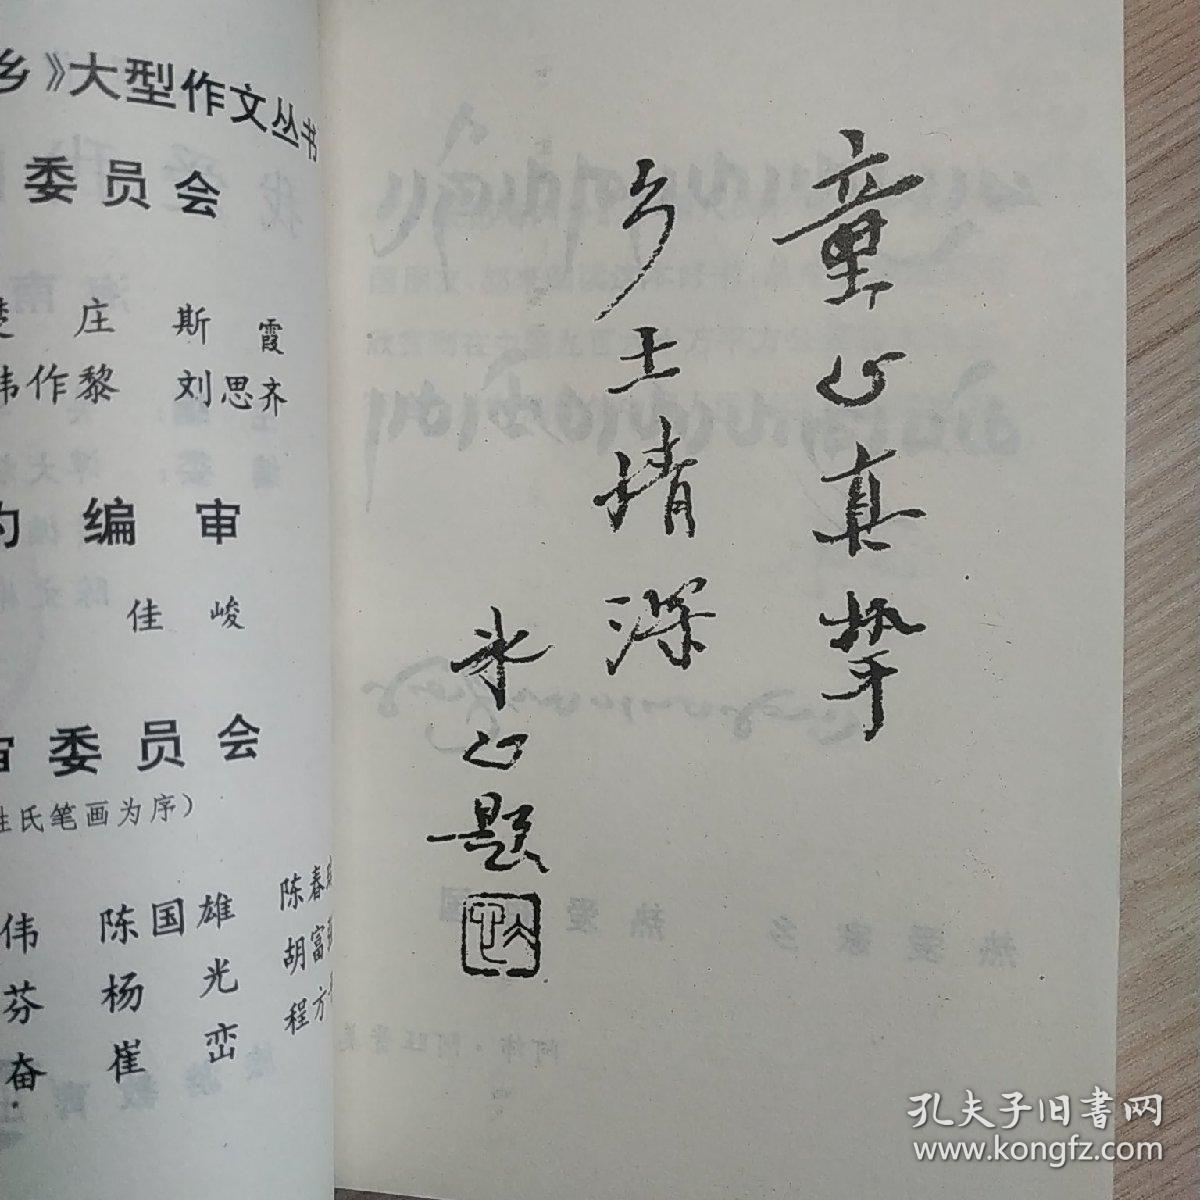 乡》大型作文丛书
委员会
庄 斯 霞
韦作黎 刘思齐
约编审
佳峻
审委员会
姓氏笔画为序）
伟 陈国雄 陈春
芬 杨光 胡富
奋 崔峦 程方
童心真挚
乡土情深
冰心题
孔夫子旧書网
www.kongfz.com